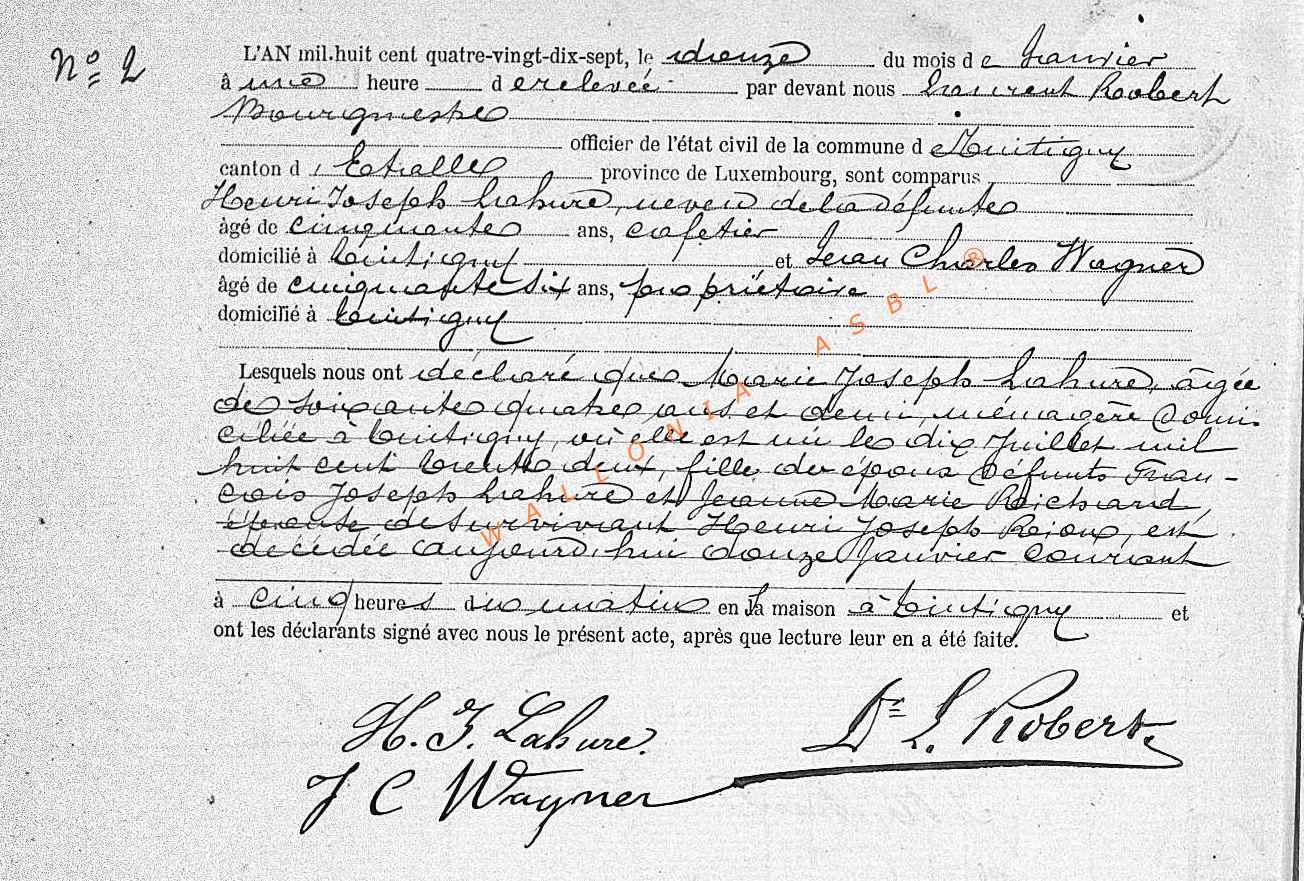 No 2
L'AN mil.huit cent quatre-vingt-dix-sept, le douze du mois de Janvier
à une heure d e relevée par devant nous Laurent Robert
Bourgmestre
officier de l'état civil de la commune de Tintigny
canton d' Etalle province de Luxembourg, sont comparus
Henri Joseph Lahure, neveu de la défunte
âgé de cinquante ans, cafetier
domicilié à Tintigny et Jean Charles Wagner
âgé de cinquante six ans, propriétaire
domicilié à Tintigny
Lesquels nous ont déclaré que Marie Joseph Lahure, âgée
de soixante quatre ans et demi, ménagère domi-
ciliée à Tintigny, où elle est née le dix Juillet mil
huit cent trente deux, fille des époux défunts Fran-
çois Joseph Lahure et Jeanne Marie Reichard,
épouse de survivant Henri Joseph Rejoux, est
décédée aujourd'hui douze Janvier courant
à cinq heures du matin en sa maison à Tintigny et
ont les déclarants signé avec nous le présent acte, après que lecture leur en a été faite.
H. J. Lahure.
Dr L. Robert
J C Wagner
WALLONIA ASBL ®